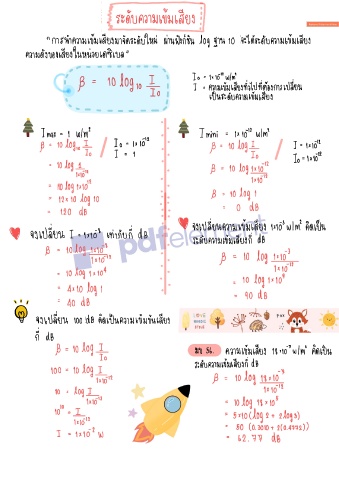 ระดับความเข้มเสียง
"การนำความเข้มเสียงมาจัดระดับใหม่ ผ่านฟังก์ชัน log ฐาน 10 จะได้ระดับความเข้มเสียง
ความดังของเสียงในหน่วยเดซิเบล"
β = 10 log₁₀ I/I₀
I₀ = 1×10⁻¹² w/m²
I = ความเข้มเสียงทั่วไปที่ต้องการเปลี่ยน
เป็นระดับความเข้มเสียง
I max = 1 w/m²
β = 10 log I/I₀
I₀ = 1×10⁻¹²
I = 1
= 10 log 1/1×10⁻¹²
= 10 log 1×10¹²
= 12×10 log 10
= 120 dB
จงเปลี่ยน I = 1×10⁻⁸ เท่ากับกี่ dB
β = 10 log 1×10⁻⁸/1×10⁻¹²
= 10 log 1×10⁴
= 4×10 log 1
= 40 dB
จงเปลี่ยน 100 dB คิดเป็นความเข้มข้นเสียง
กี่ dB
β = 10 log I/I₀
100 = 10 log I/1×10⁻¹²
10 = log I/1×10⁻¹²
10¹⁰ = I/1×10⁻¹²
I = 1×10⁻² w
I mini = 1×10⁻¹² w/m²
β = 10 log I/I₀
I = 1×10⁻¹²
I₀ = 1×10⁻¹²
β = 10 log 1×10⁻¹²/1×10⁻¹²
β = 10 log 1
β = 0 dB
จงเปลี่ยนความเข้มเสียง 1×10⁻³ w/m² คิดเป็น
ระดับความเข้มเสียงกี่ dB
β = 10 log 1×10⁻³/1×10⁻¹²
= 10 log 1×10⁹
= 90 dB
ความเข้มเสียง 18×10⁻⁷ w/m² คิดเป็น
ระดับความเข้มเสียงกี่ dB
β = 10 log 18×10⁻⁷/1×10⁻¹²
= 10 log 18×10⁵
= 5×10 (log 2 + 2log 3)
= 62.77 dB
pdfelement